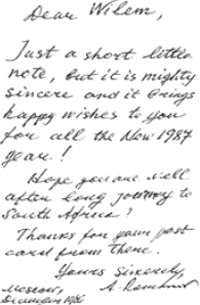 Dear Wilem,
Just a short little
note, but it is mighty
sincere and it brings
happy wishes to you
for all the New 1987
year!
Hope you are well
after long journey to
South Africa?
Thanks for your post
card from there.
Yours Sincerely,
Moscow,
December 1986
A.